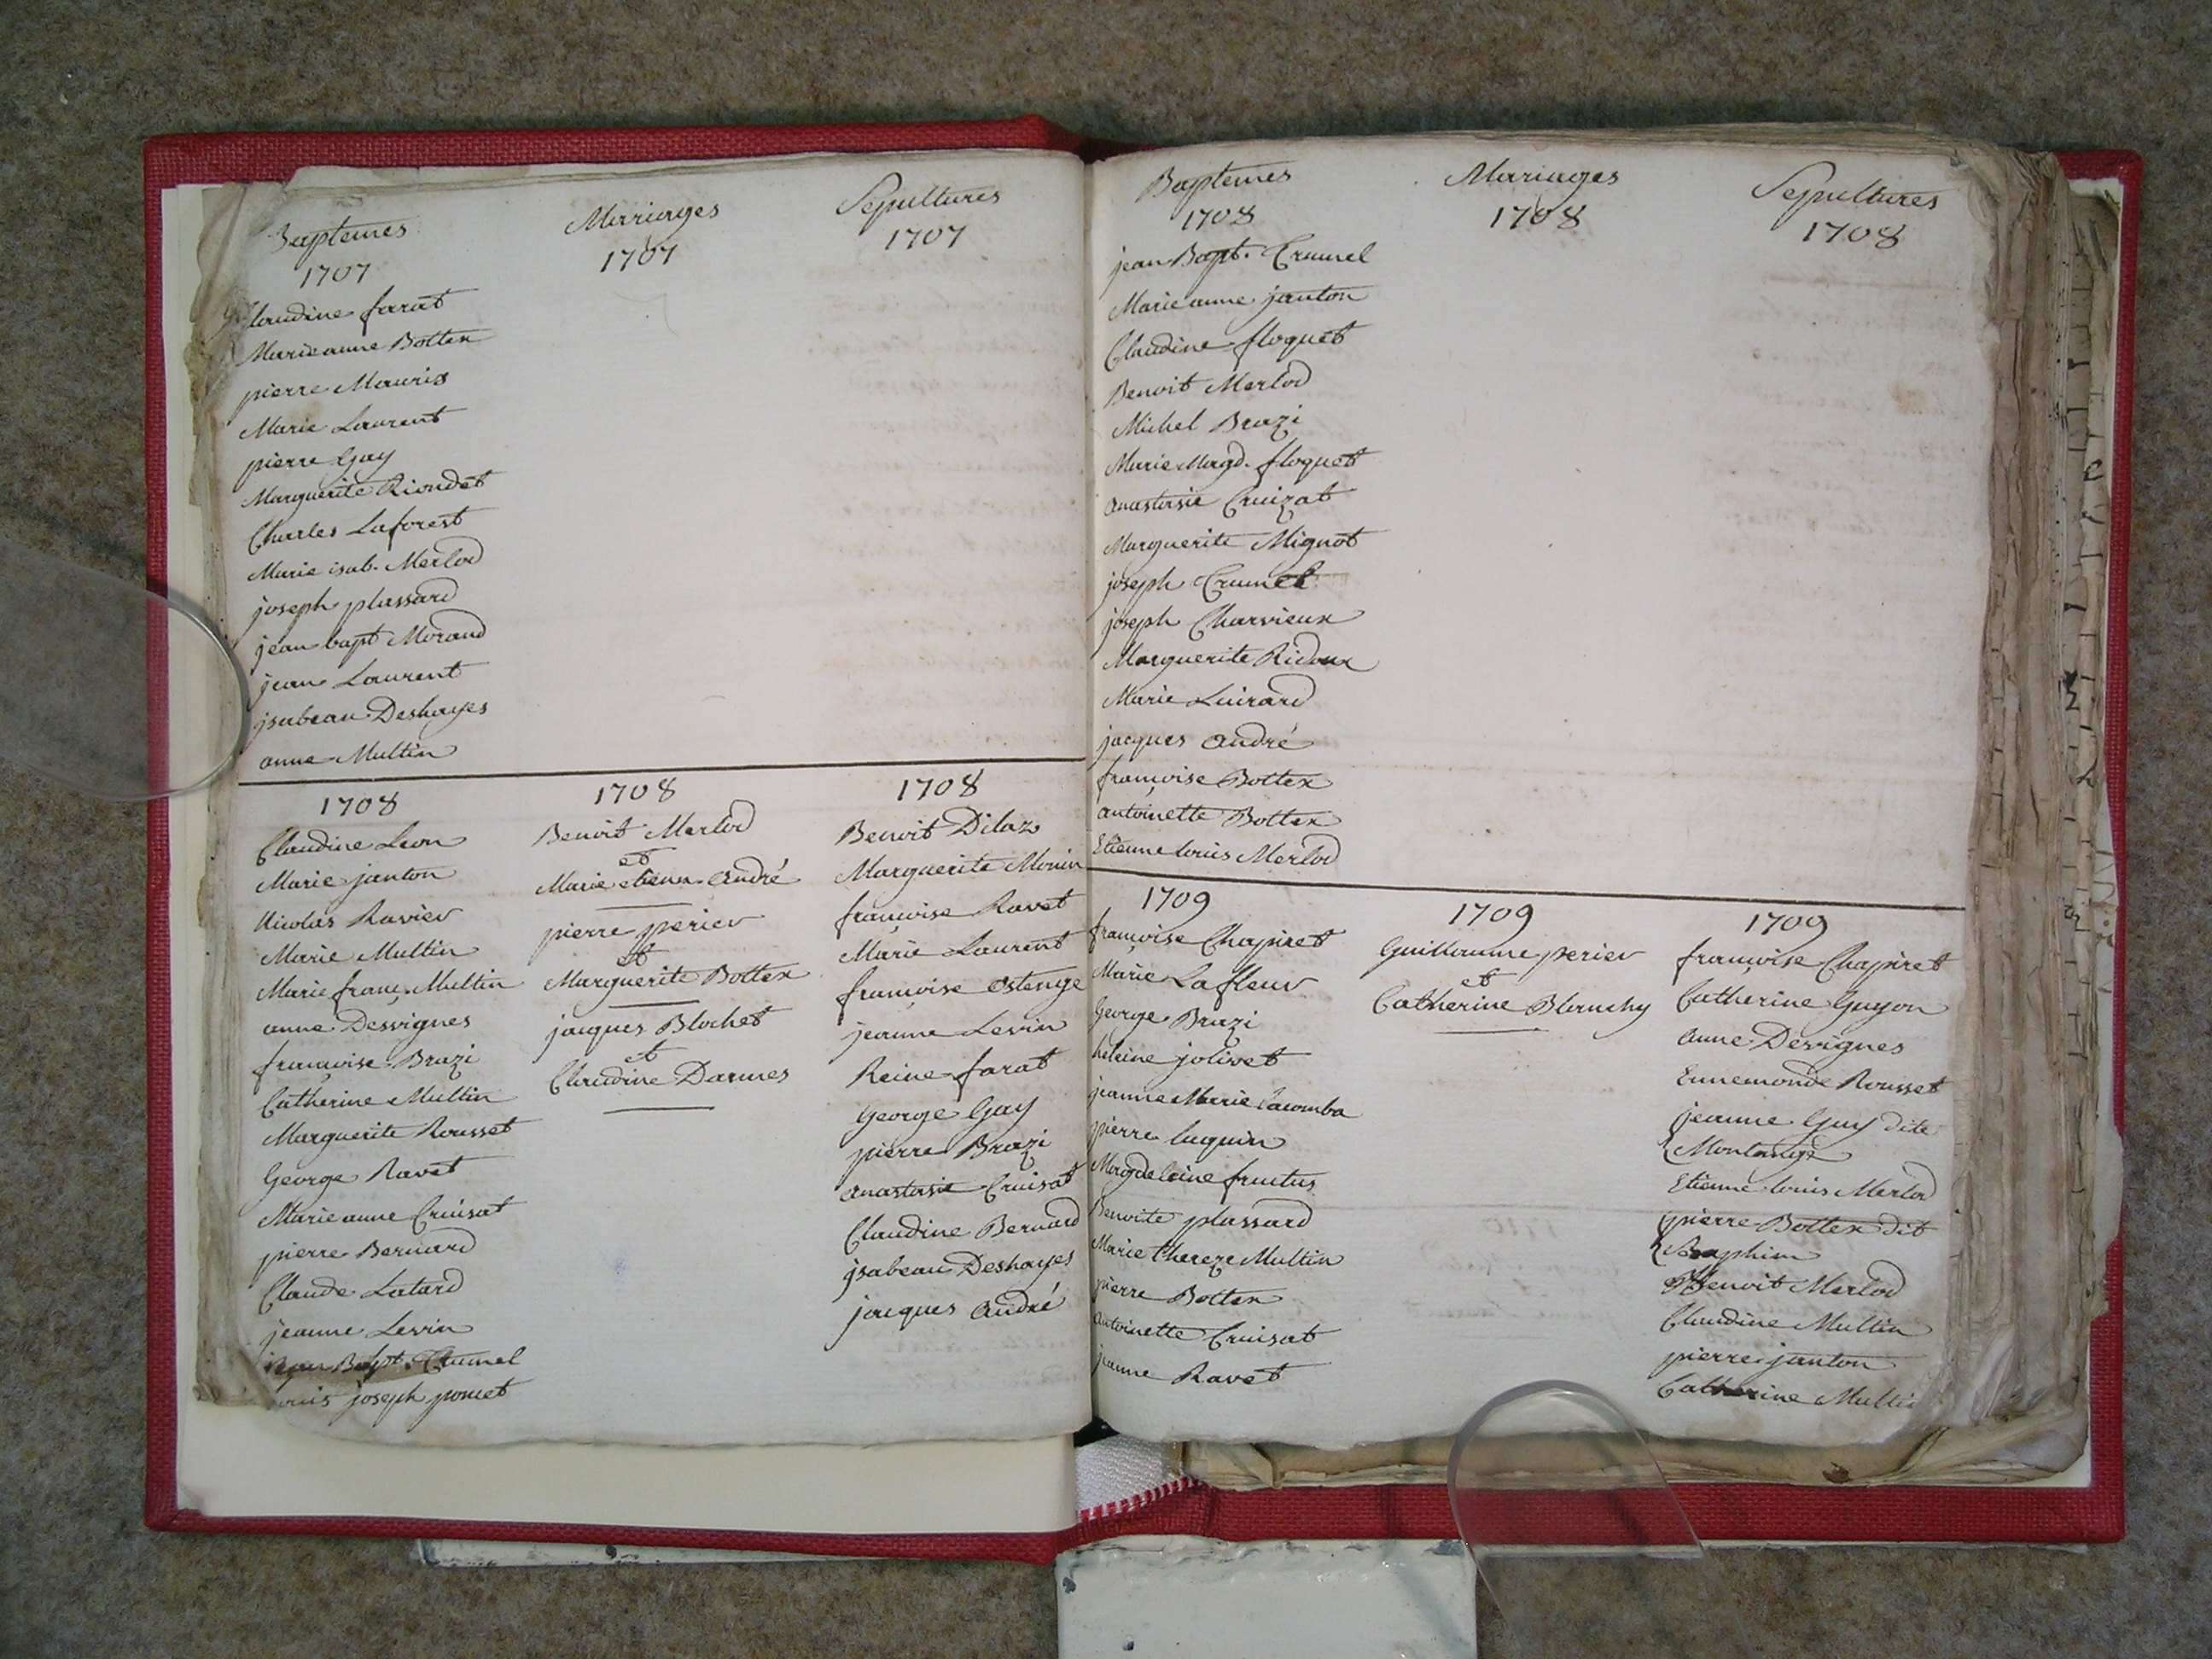 Baptemes
1707
Claudine farat
Marie anne Bottex
pierre Mauris
Marie Laurent
pierre Gay
Marguerite Riondet
Charles Laforest
Marie isab. Merlod
joseph plassard
jean bapt Morand
jean Laurent
jsabeau Deshayes
anne Multin
Marriages
1707
Sepultures
1707
1708
Claudine Leon
Marie janton
Nicolas Ravier
Marie Multin
Marie franç. Multin
anne Desvignes
françoise Brazi
Catherine Multin
Marguerite Rousset
George Ravet
Marie anne Cruisat
pierre Bernard
Claude Latard
jeanne Levin
jean Bapt. Crumel
Louis joseph poncet
1708
Benoit Merlod
et
Marie etienn. andré
pierre perier
et
Marguerite Bottex
jacques Blochet
et
Claudine Darmes
1708
Benoit Dilaz
Marguerite Monin
françoise Ravet
Marie Laurent
françoise Ostenge
jeanne Levin
Reine farat
George Gay
pierre Brazi
anastasie Cruisat
Claudine Bernard
jsabeau Deshayes
jacques andré
Baptemes
1708
jean Bapt. Crumel
Marie anne janton
Claudine floquet
Benoit Merlod
Michel Brazi
Marie Magd. floquet
anastasie Cruizat
Marguerite Mignot
joseph Crumel
joseph Charvieux
Marguerite Ridoux
Marie Luirard
jacques andré
françoise Bottex
antoinette Bottex
Etienne louis Merlod
Marriages
1708
Sepultures
1708
1709
françoise Chapiret
Marie Lafleur
George Brazi
heleine jolivet
jeanne Marie Lacomba
pierre luquin
Magdeleine fructus
Benoite plassard
Marie thereze Multin
pierre Bottex
antoinette Cruisat
jeanne Ravet
1709
Guillaume perier
et
Catherine Blanchy
1709
françoise Chapiret
Catherine Guyon
anne Desvignes
Ennemonde Rousset
jeanne Guy dite
Etienne louis Merlod
pierre Bottex dit
Benoit Merlod
Claudine Multin
pierre janton
Catherine Multin